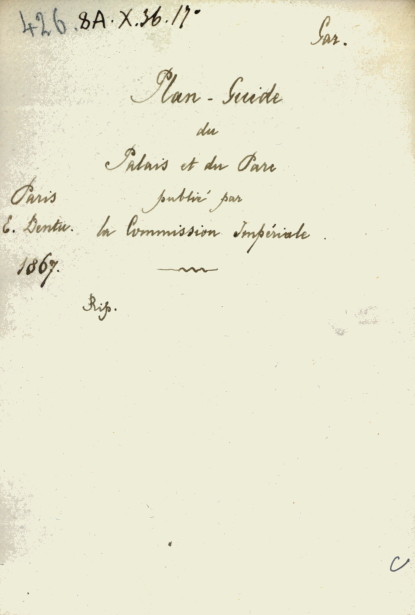 426. 8A. X. 36. 17°
Gar.
Plan - Guide
du
Palais et du Parc
publié par
la Commission Impériale.
Paris
E. Dentu.
1867.
Rip.
C